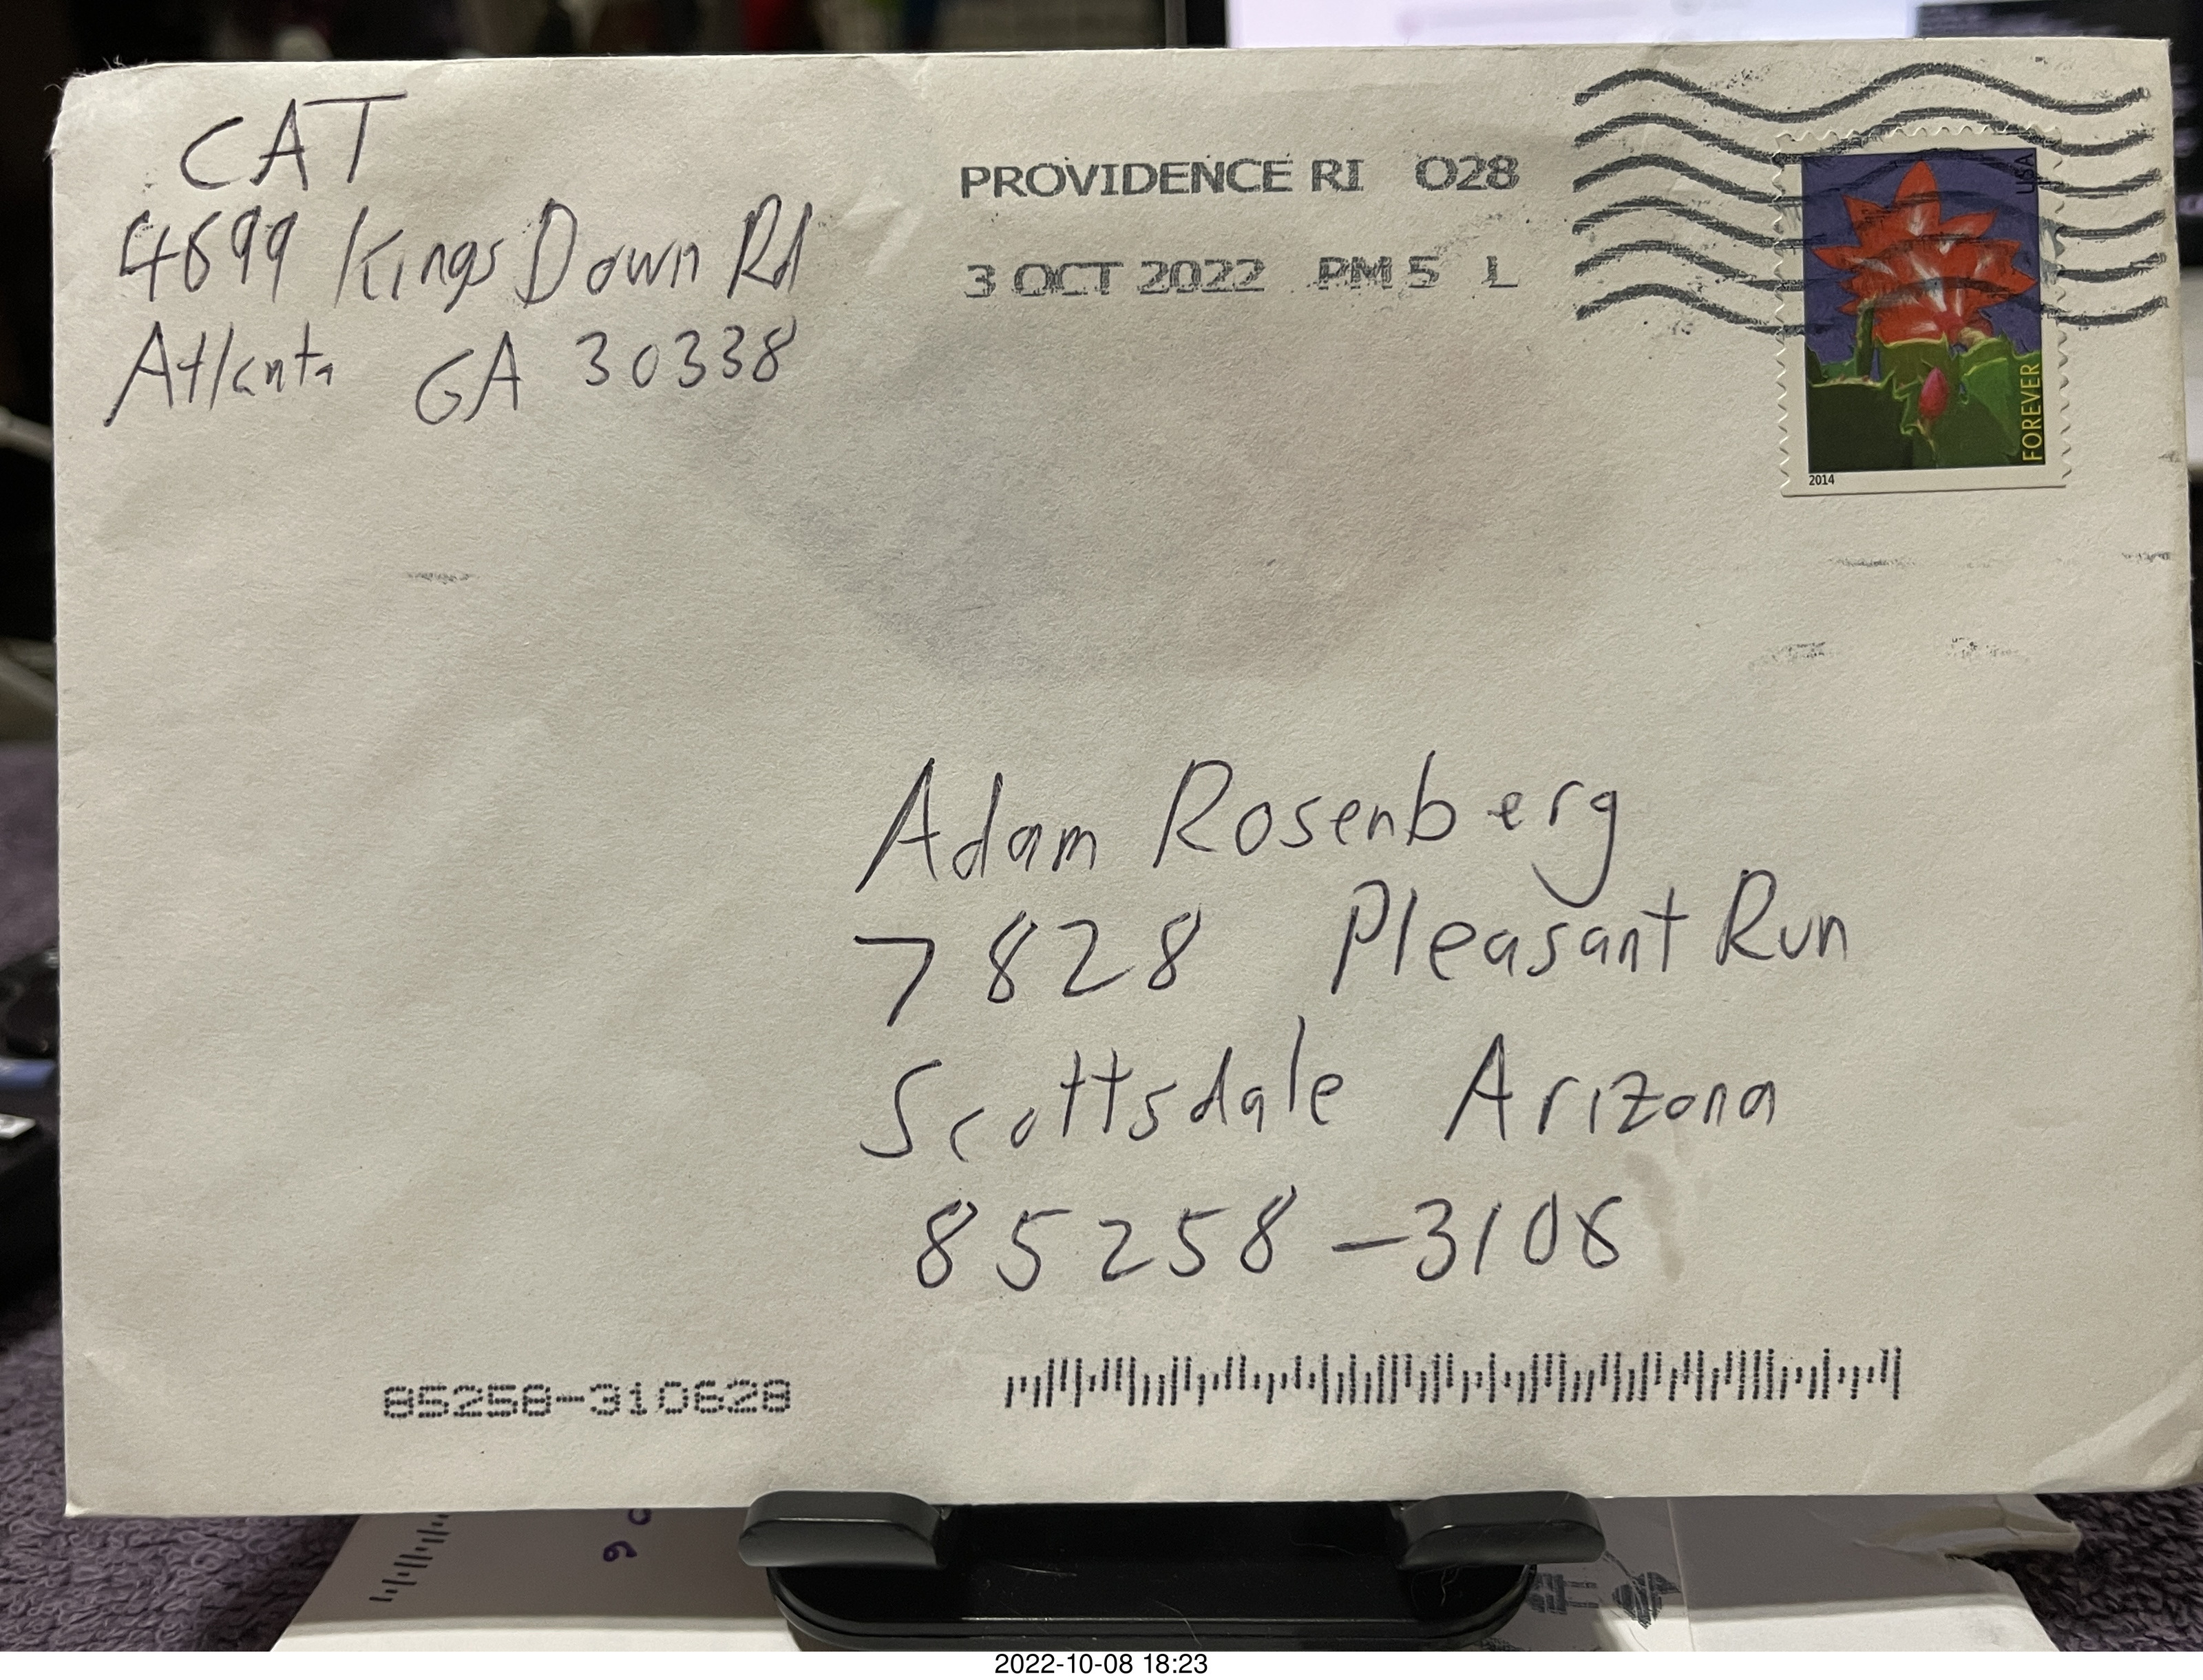 CAT
4699 Kings Down Rd
Atlanta GA 30338
PROVIDENCE RI 028
3 OCT 2022 PM 5 L
USA
FOREVER
2014
Adam Rosenberg
7828 Pleasant Run
Scottsdale Arizona
85258-3106
85258-310628
2022-10-08 18:23